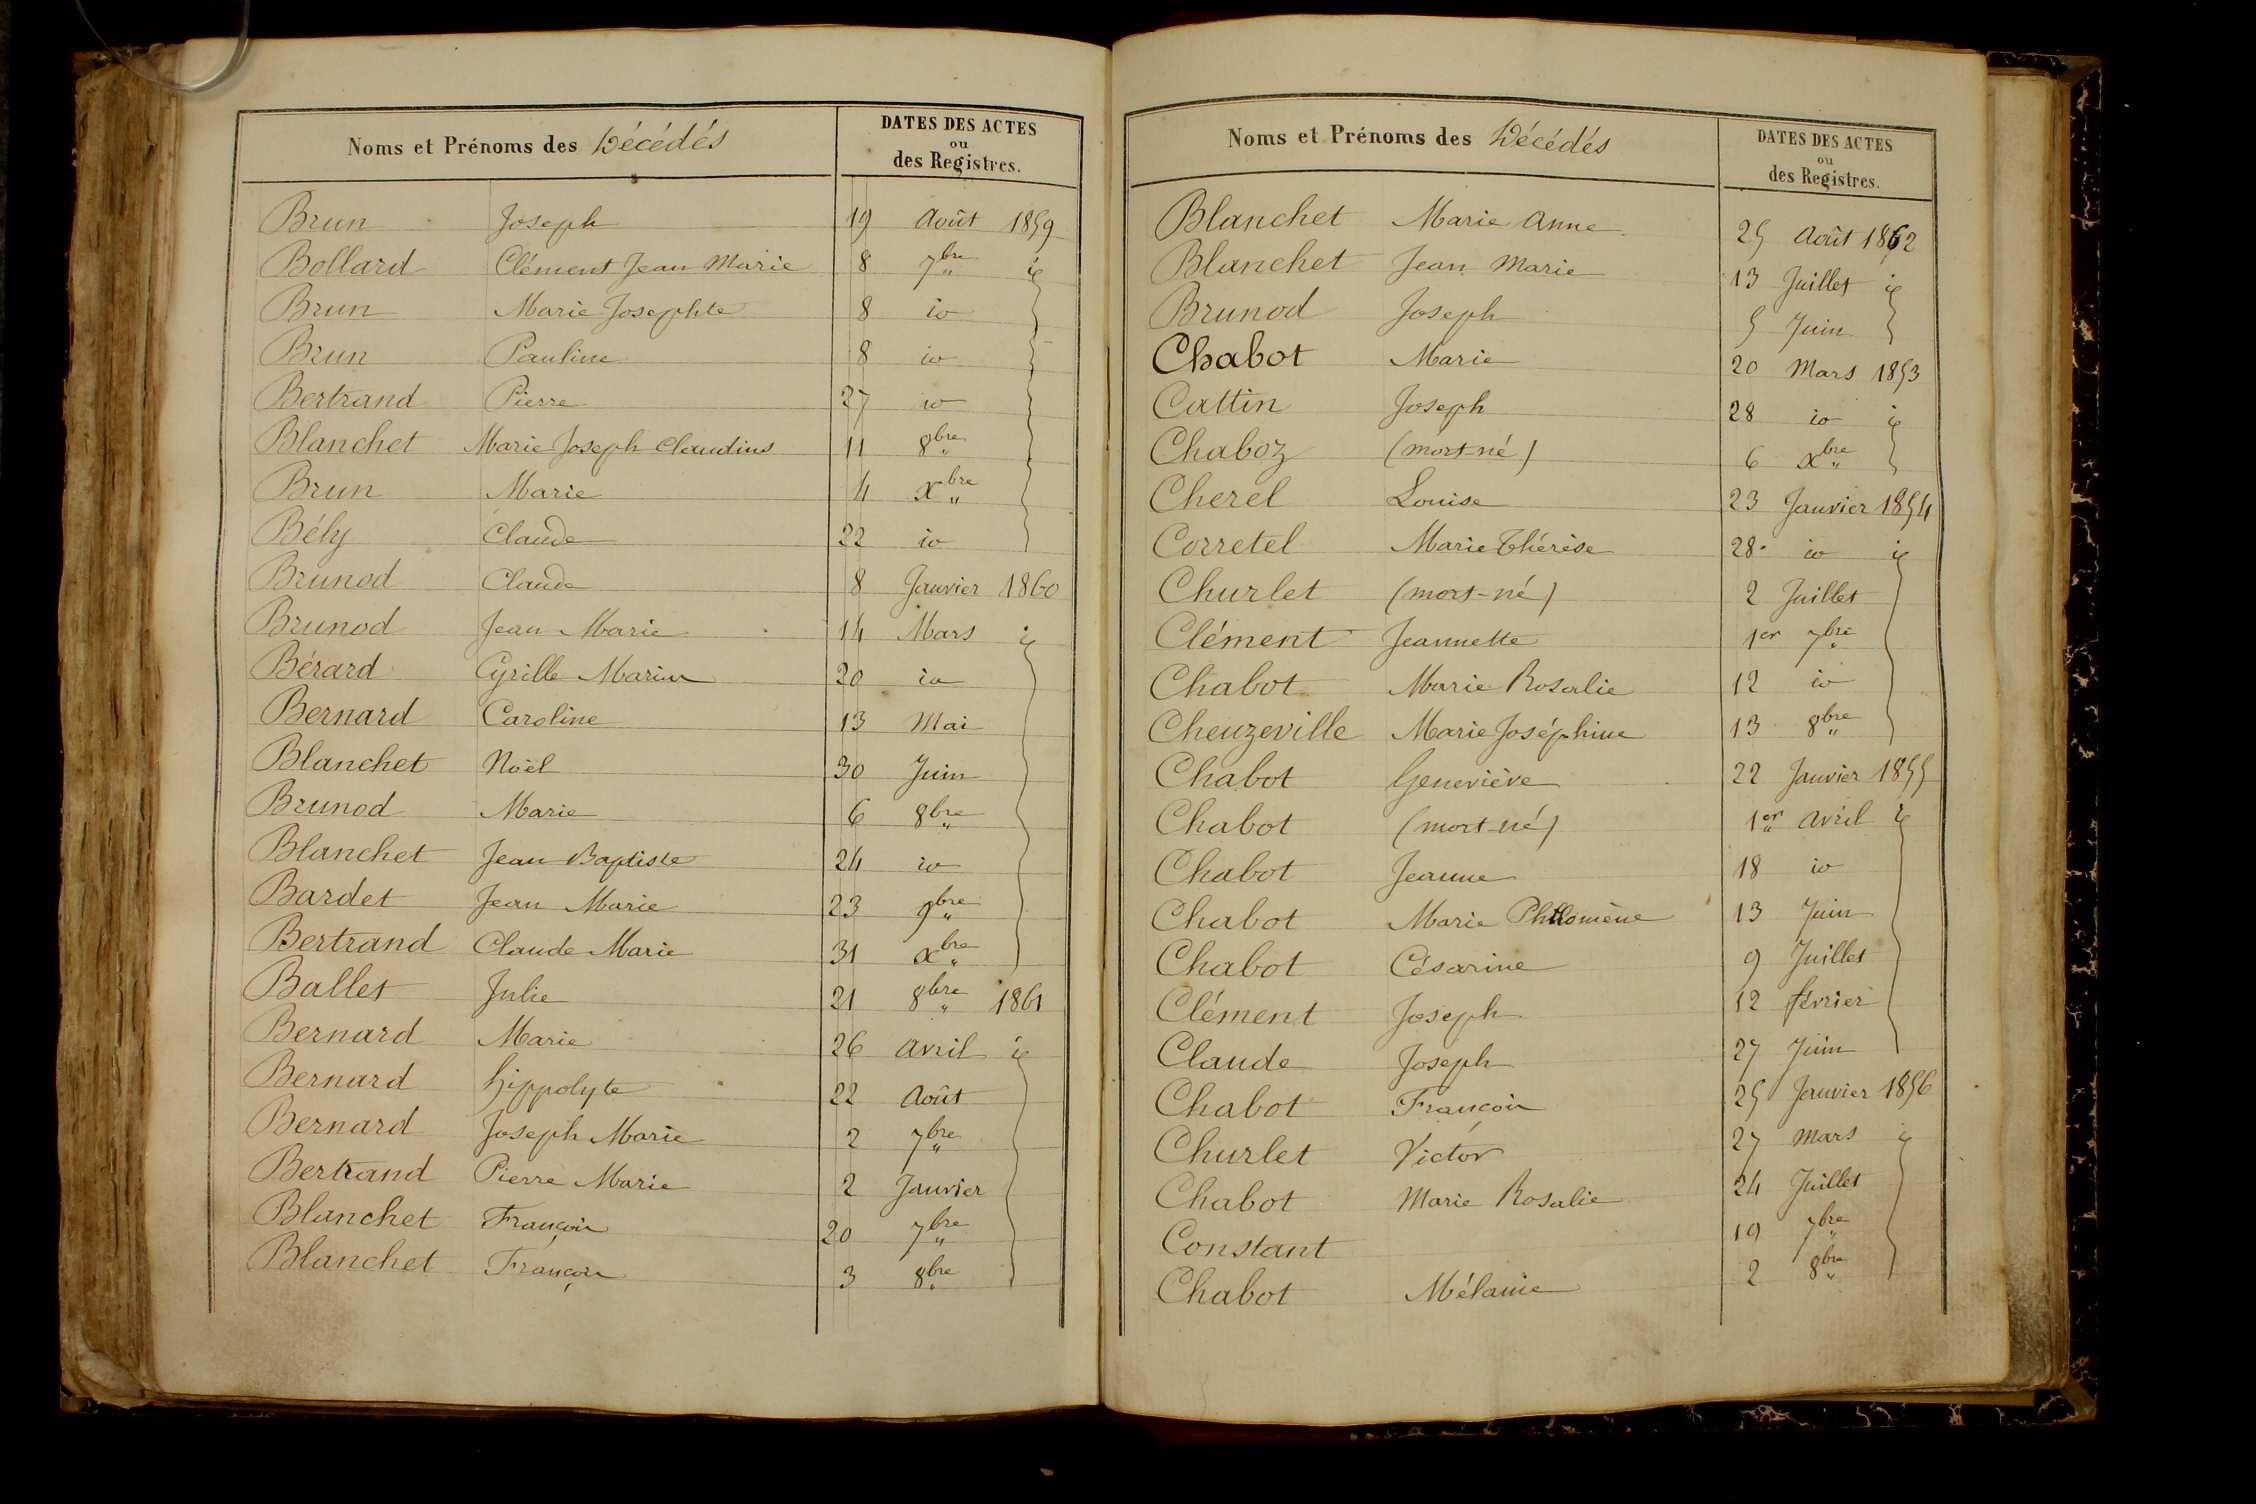 Noms et Prénoms des Décédés
DATES DES ACTES
ou
des Registres.
Brun Joseph 19 Août 1859
Bollard Clément Jean Marie 8 7bre id
Brun Marie Josephte 8 id
Brun Pauline 8 id
Bertrand Pierre 27 id
Blanchet Marie Joseph Claudius 11 8bre
Brun Marie 4 Xbre
Bély Claude 22 id
Brunod Claude 8 Janvier 1860
Brunod Jean Marie 14 Mars id
Bérard Cyrille Marius 20 id
Bernard Caroline 13 Mai
Blanchet Noël 30 Juin
Brunod Marie 6 8bre
Blanchet Jean Baptiste 24 id
Bardet Jean Marie 23 9bre
Bertrand Claude Marie 31 Xbre
Ballet Julie 21 8bre 1861
Bernard Marie 26 Avril id
Bernard Hippolyte 22 Août
Bernard Joseph Marie 2 7bre
Bertrand Pierre Marie 2 Janvier
Blanchet François 20 7bre
Blanchet François 3 8bre
Noms et Prénoms des Décédés
DATES DES ACTES
ou
des Registres.
Blanchet Marie Anne 25 Août 1862
Blanchet Jean Marie 13 Juillet id
Brunod Joseph 5 Juin
Chabot Marie 20 Mars 1853
Cattin Joseph 28 id id
Chaboz (mort-né) 6 Xbre
Cherel Louise 23 Janvier 1854
Corretel Marie Thérèse 28 id id
Churlet (mort-né) 2 Juillet
Clément Jeannette 1er 7bre
Chabot Marie Rosalie 12 id
Cheuzeville Marie Joséphine 13 8bre
Chabot Geneviève 22 Janvier 1855
Chabot (mort-né) 1er Avril id
Chabot Jeanne 18 id
Chabot Marie Philomène 13 Juin
Chabot Césarine 9 Juillet
Clément Joseph 12 février
Claude Joseph 27 Juin
Chabot François 25 Janvier 1856
Churlet Victor 27 Mars id
Chabot Marie Rosalie 24 Juillet
Constant 19 7bre
Chabot Mélanie 2 8bre